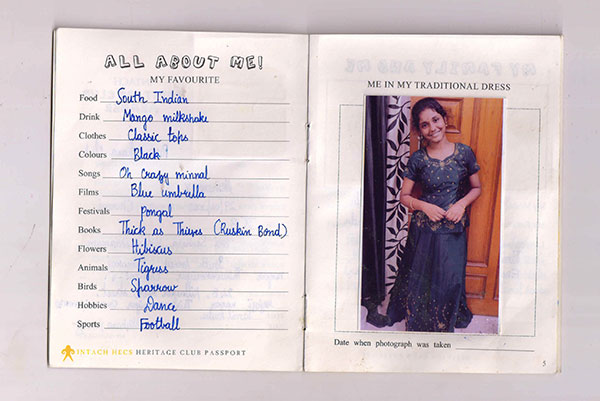 ALL ABOUT ME!
MY FAVOURITE
Food South Indian
Drink Mango milkshake
Clothes Classic tops
Colours Black
Songs Oh crazy minnal
Films Blue umbrella
Festivals pongal
Books Thick as Thieves (Ruskin Bond)
Flowers Hibiscus
Animals Tigress
Birds Sparrow
Hobbies Dance
Sports Football
INTACH HECS HERITAGE CLUB PASSPORT
ME IN MY TRADITIONAL DRESS
Date when photograph was taken
5